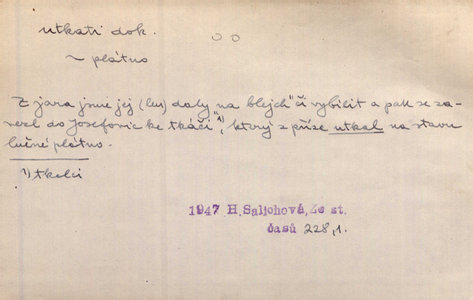 utkati dok.
~ plátno
Z jara jsme jej (len) daly „na blejch“ či vybílit a pak se za-
vezl do Josefovic ke tkáči¹⁾, který z příze utkal na stavu
lněné plátno.
¹⁾ tkalci
1947 H. Salichová, Ze st.
časů 228,1.